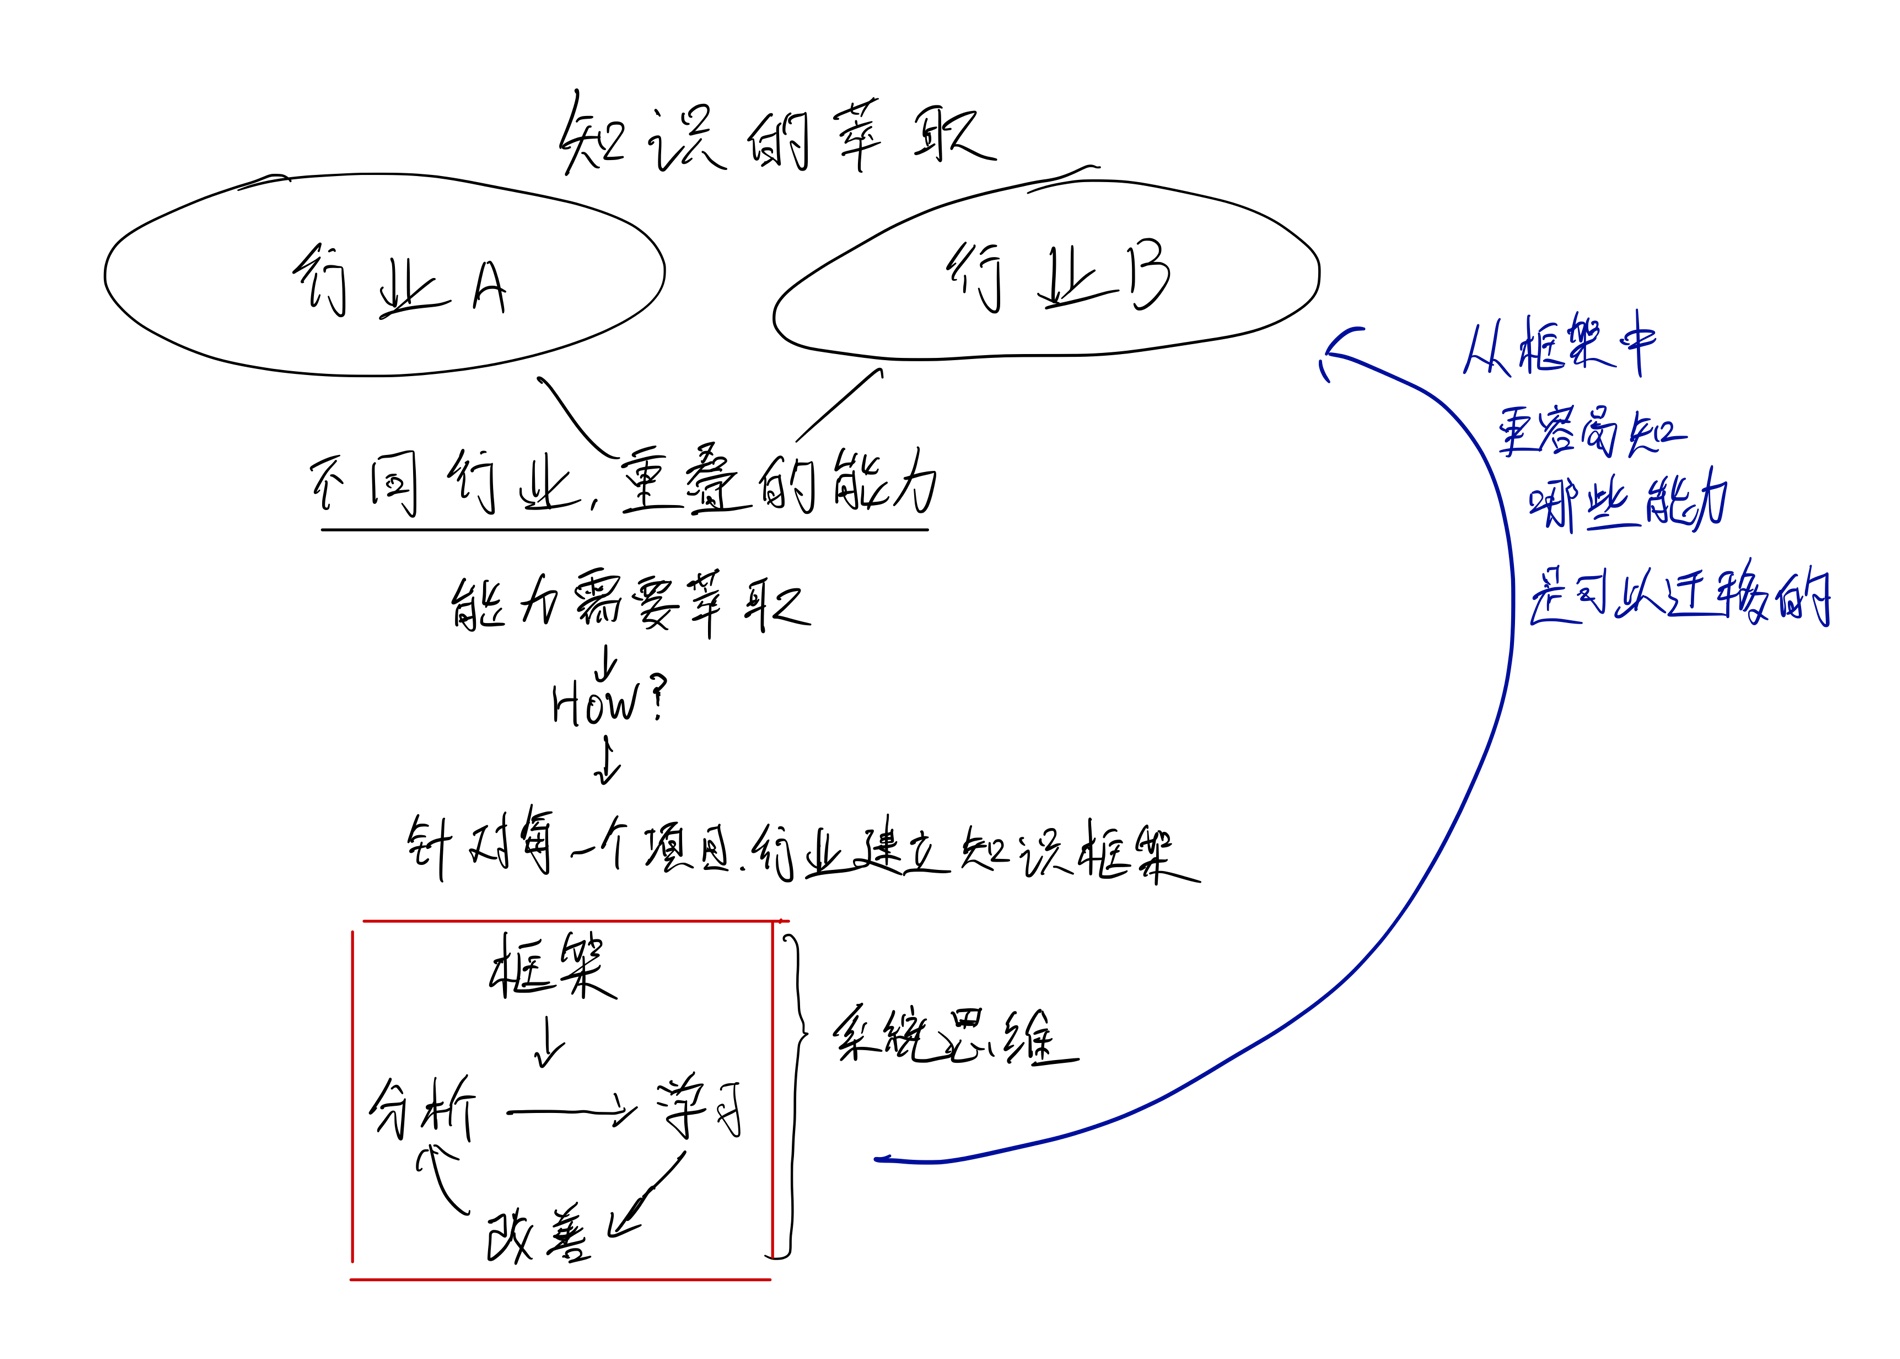 知识的萃取
行业A
行业B
不同行业，重叠的能力
能力需要萃取
How?
针对每一个项目、行业建立知识框架
框架
分析
学习
改善
系统思维
从框架中
更容易知
哪些能力
是可以迁移的